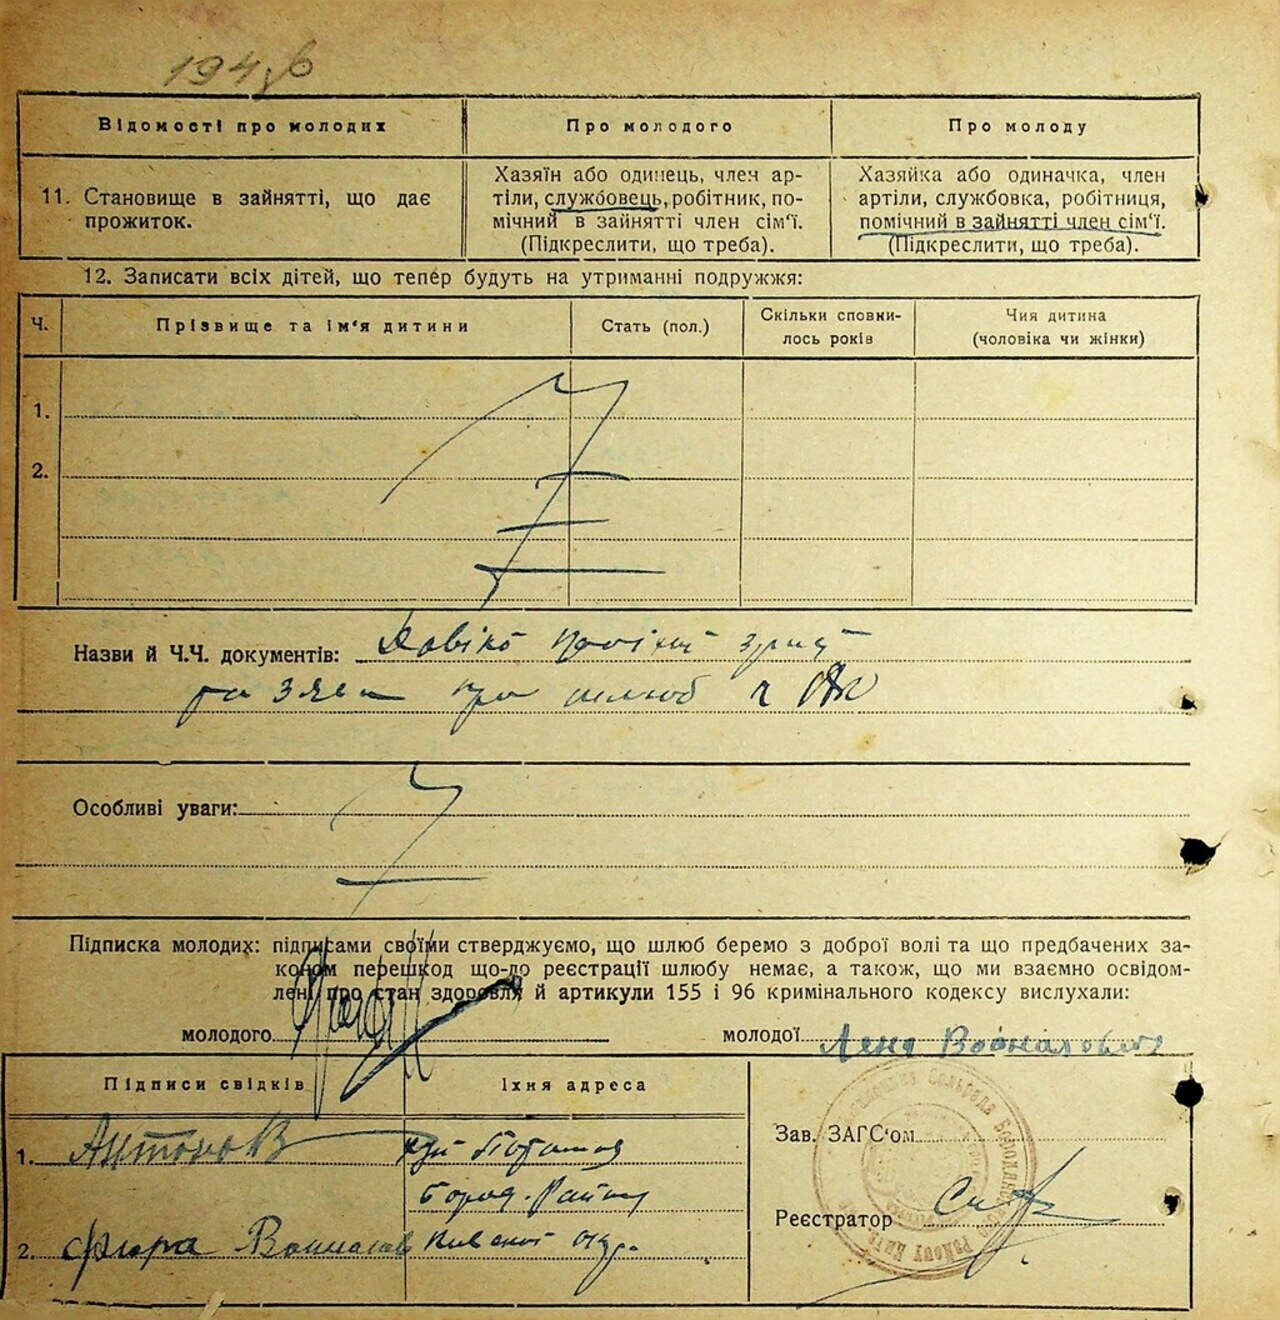 Відомості про молодих
Про молодого
Про молоду
11. Становище в зайнятті, що дає
прожиток.
Хазяїн або одинець, член ар-
тіли, службовець, робітник, по-
мічний в зайнятті член сім'ї.
(Підкреслити, що треба).
Хазяйка або одиначка, член
артіли, службовка, робітниця,
помічний в зайнятті член сім'ї.
(Підкреслити, що треба).
12. Записати всіх дітей, що тепер будуть на утриманні подружжя:
Ч.
Прізвище та ім'я дитини
Стать (пол.)
Скільки сповни-
лось років
Чия дитина
(чоловіка чи жінки)
1.
2.
Назви й Ч.Ч. документів:
та про шлюб
Особливі уваги:
Підписка молодих: підписами своїми стверджуємо, що шлюб беремо з доброї волі та що предбачених за-
коном перешкод що-до реєстрації шлюбу немає, а також, що ми взаємно освідом-
лені про стан здоровля й артикули 155 і 96 кримінального кодексу вислухали:
молодого
молодої Лена Войналович
Підписи свідків
Їхня адреса
1. Антонов
Бород. Району
2. Київської окр.
Зав. ЗАГС'ом
Реєстратор